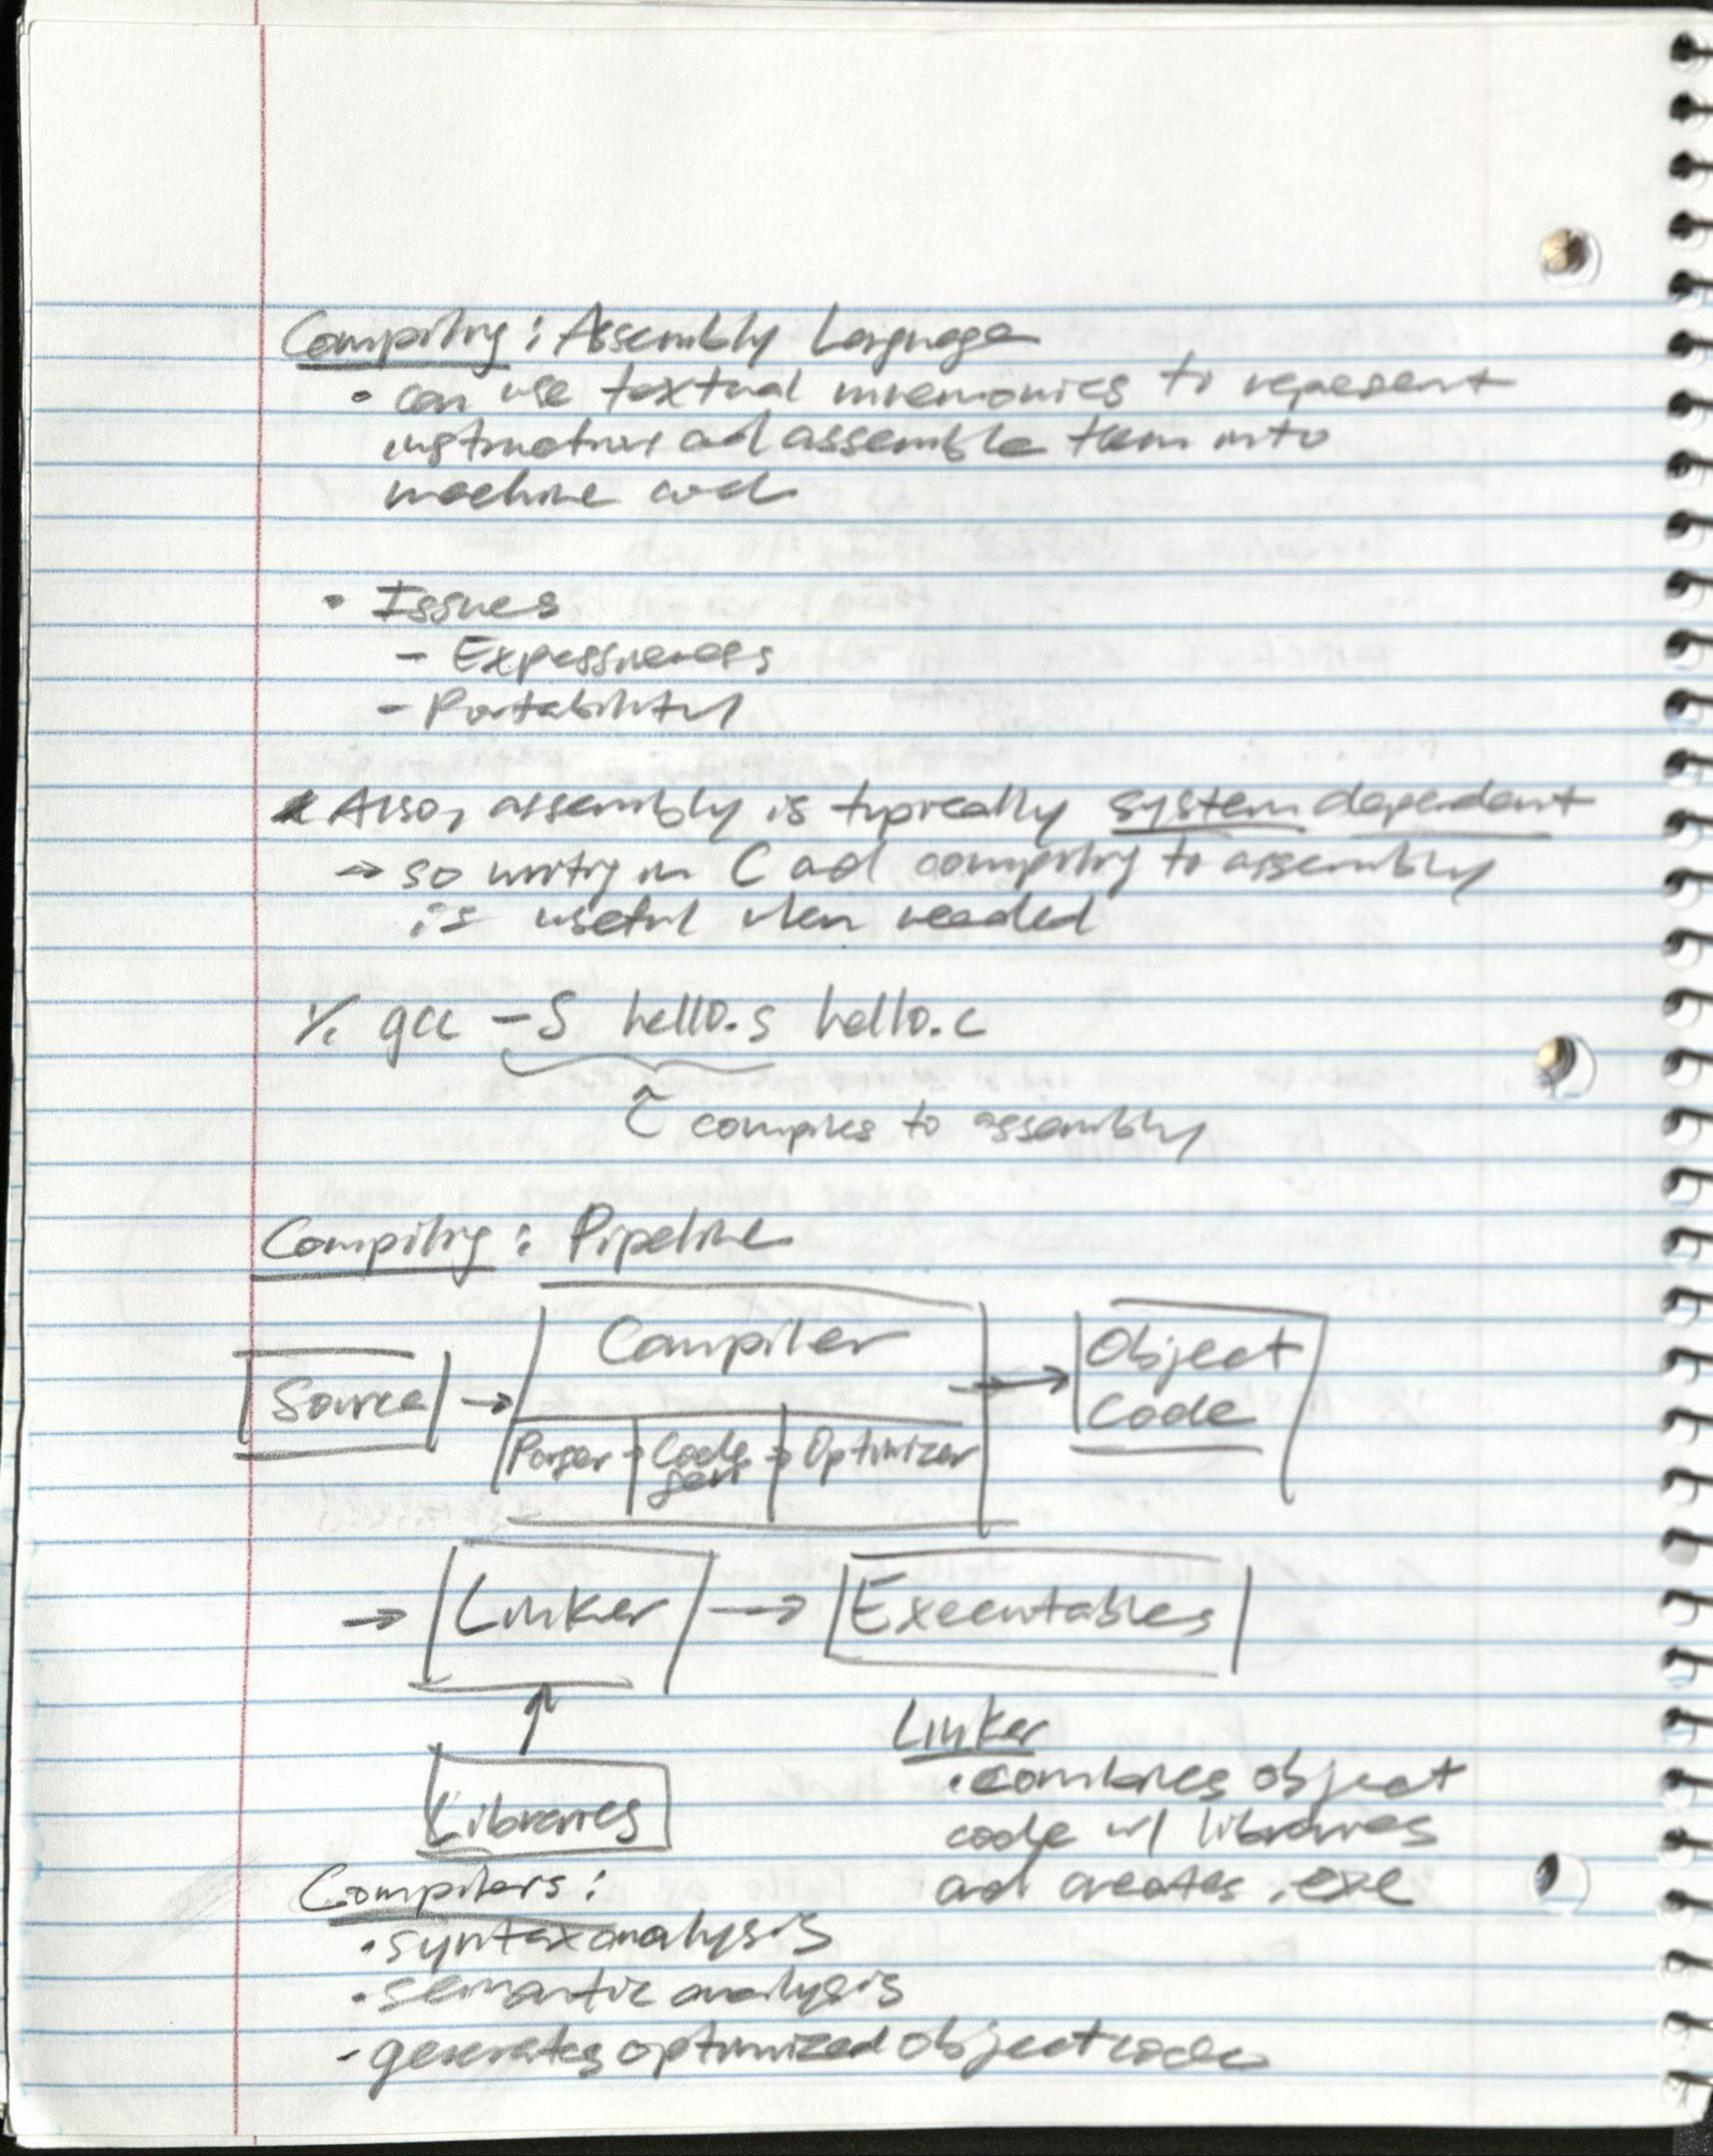 Compiling: Assembly Language
• can use textual mnemonics to represent
instructions and assemble them into
machine code
• Issues
- Expressiveness
- Portability
* Also, assembly is typically system dependent
→ so writing in C and compiling to assembly
is useful when needed
% gcc -S hello.s hello.c
compiles to assembly
Compiling: Pipeline
Source → Compiler → Object
Code
Parser → Code → Optimizer
gen
→ Linker → Executables
Libraries
Linker
• combines object
code w/ libraries
and creates .exe
Compilers:
• syntax analysis
• semantic analysis
- generates optimized object code